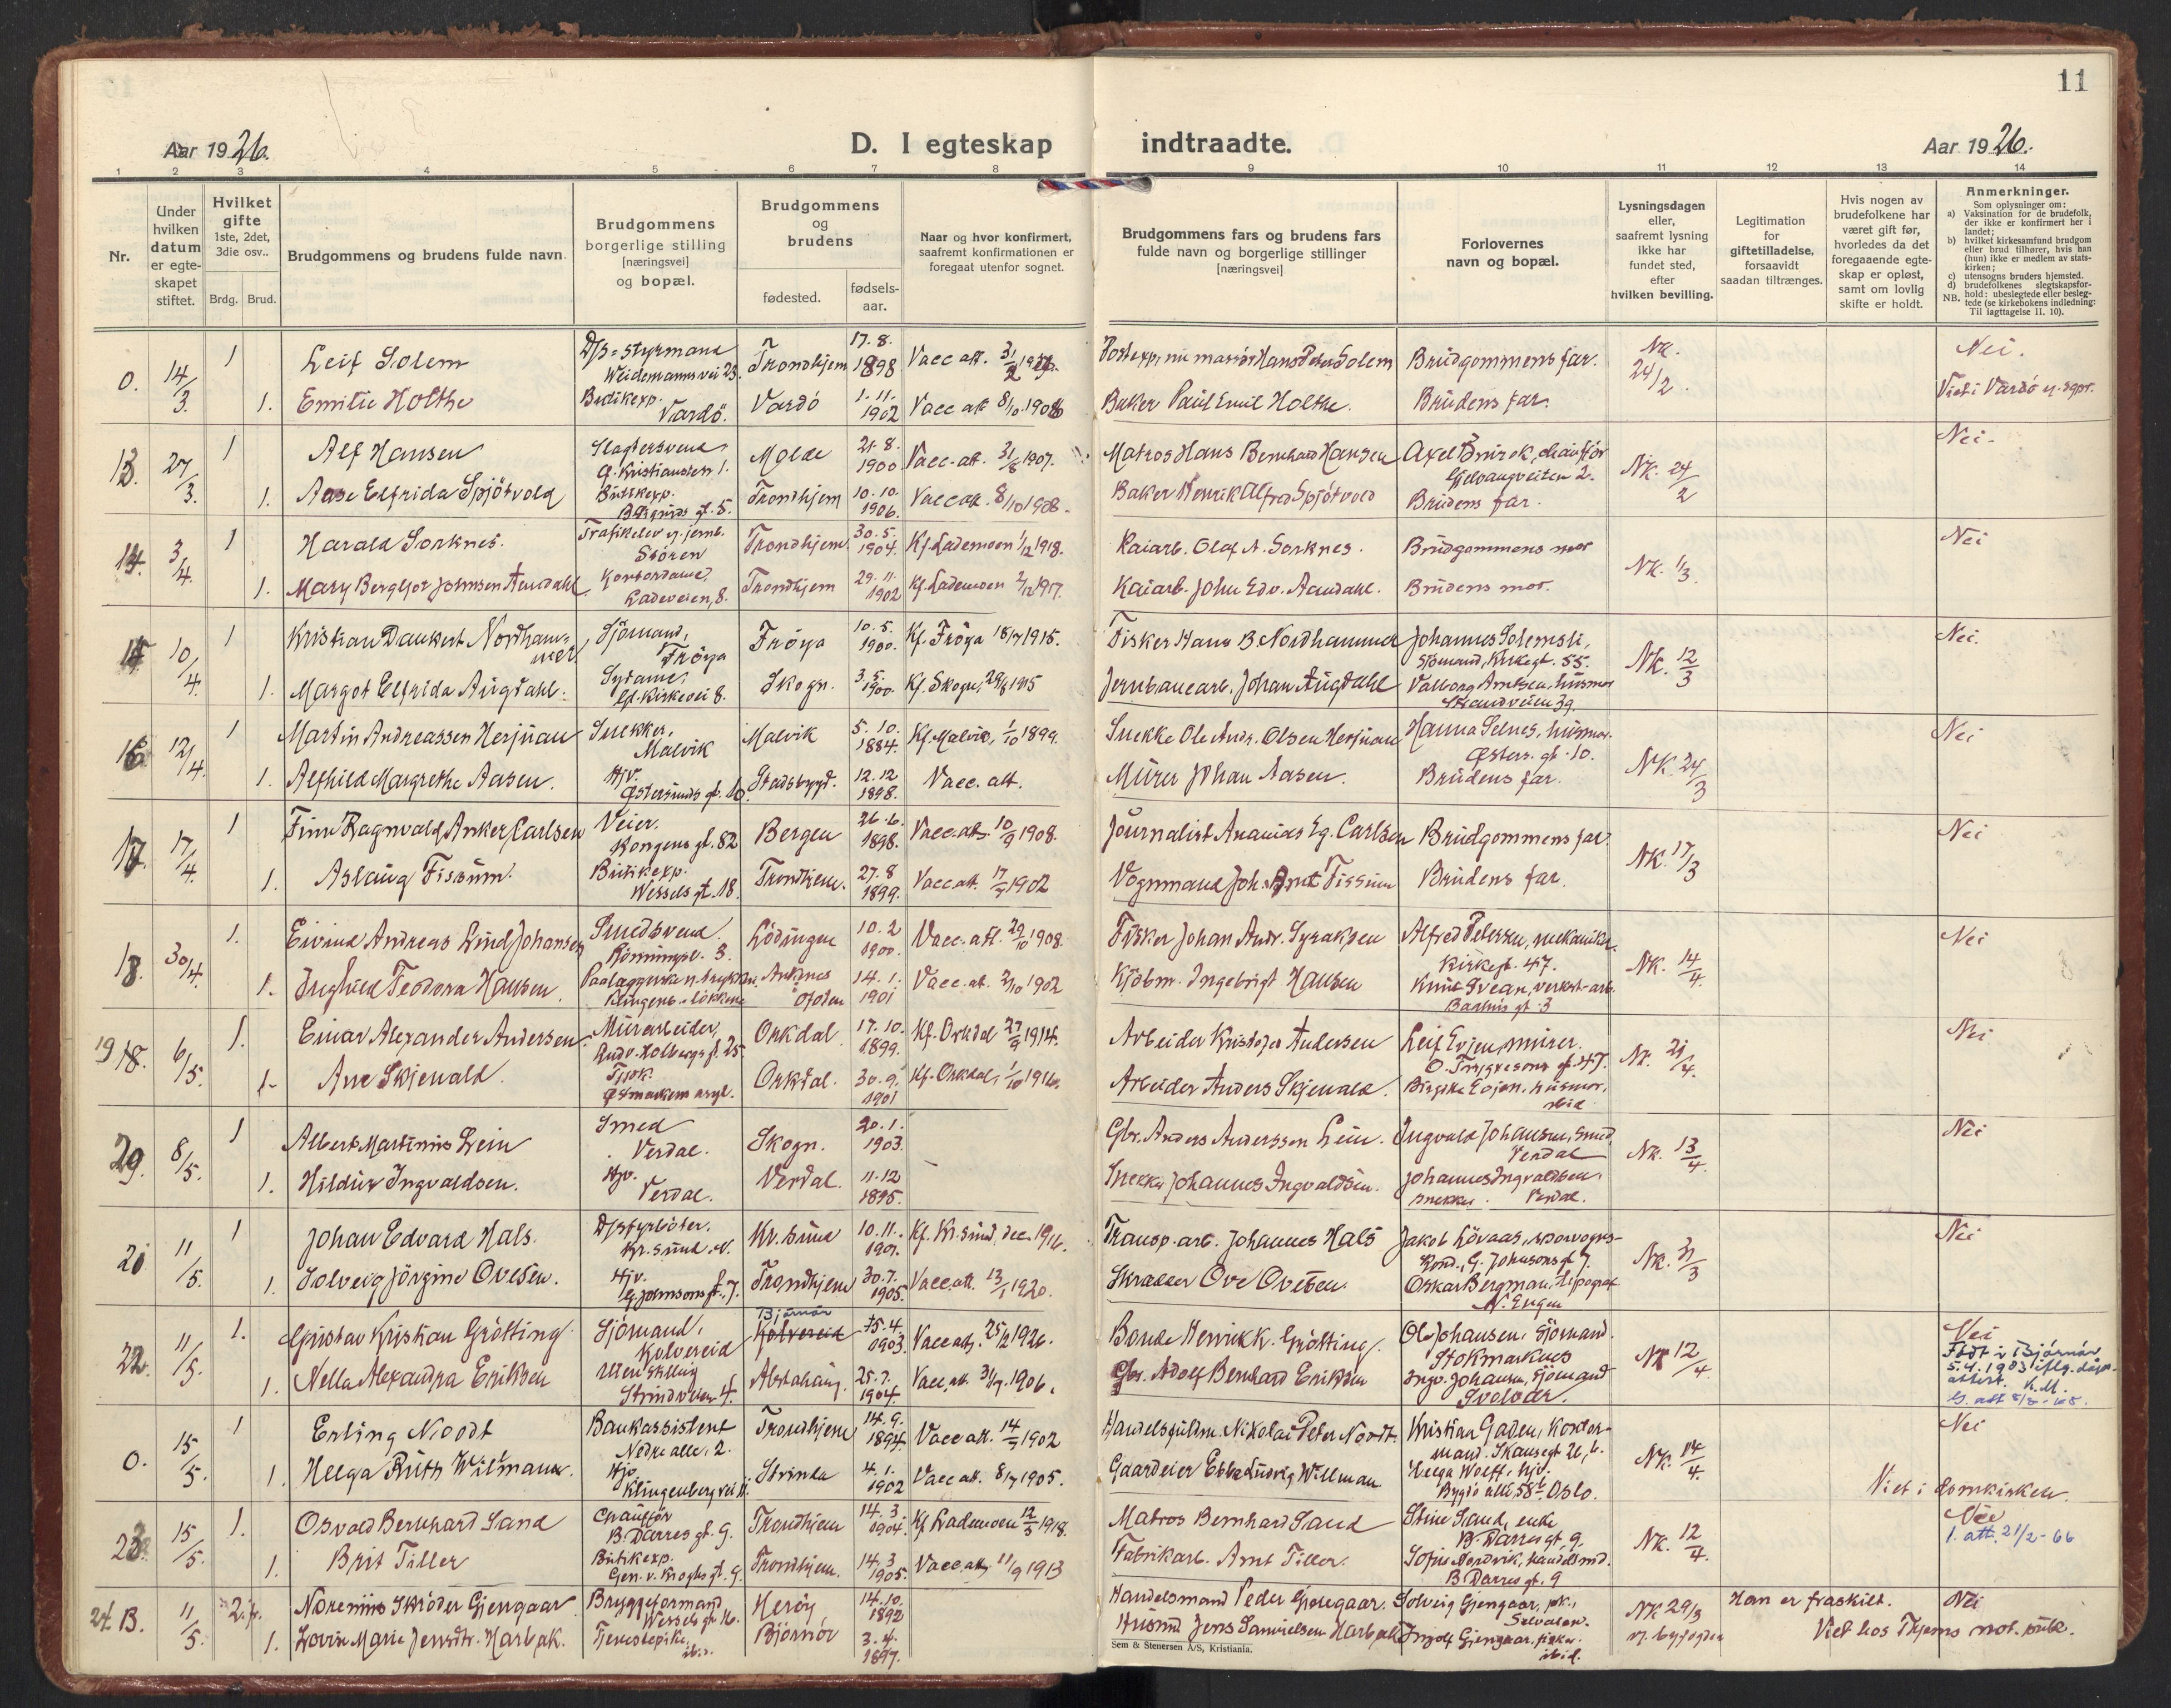 11
Aar 1926.
D. I egteskap indtraadte.
Aar 1926.
1 2 3 4 5 6 7 8 9 10 11 12 13 14
Nr.
Under hvilken datum er egteskapet stiftet.
Hvilket gifte 1ste, 2det, 3die osv..
Brdg. Brud.
Brudgommens og brudens fulde navn.
Brudgommens borgerlige stilling [næringsvei] og bopæl.
Brudgommens og brudens
fødested.
fødselsaar.
Naar og hvor konfirmert, saafremt konfirmationen er foregaat utenfor sognet.
Brudgommens fars og brudens fars fulde navn og borgerlige stillinger [næringsvei]
Forlovernes navn og bopæl.
Lysningsdagen eller, saafremt lysning ikke har fundet sted, efter hvilken bevilling.
Legitimation for giftetilladelse, forsaavidt saadan tiltrænges.
Hvis nogen av brudefolkene har været gift før, hvorledes da det foregaaende egteskap er opløst, samt om lovlig skifte er holdt.
Anmerkninger.
Som oplysninger om:
a) Vaksination for de brudefolk, der ikke er konfirmert her i landet;
b) hvilket kirkesamfund brudgom eller brud tilhører, hvis han (hun) ikke er medlem av statskirken;
c) utensogns bruders hjemsted.
d) brudefolkenes slegtskapsforhold: ubeslegtede eller beslegtede (se kirkebokens indledning:
NB. Til iagttagelse II. 10).
0. 14/3. 1 Leif Solem D/S=styrmand Weidemannsvei 23. Trondhjem 17.8. 1898 Vacc att. Hans Peter Solem Brudgommens far. NK. 24/2. Nei.
1. Emilie Holthe Butikexp. Vardö. Vardö 1.11. 1902 Vacc att 8/10. Baker Paul Emil Holthe. Brudens far. Viet i Vardö
13. 27/3. 1 Alf Hansen Slagtersvend Molde 21.8. 1900 Vacc. att. 31/8 1907. Matros Hans Bernhard Hansen Axel NK. 24/2 Nei.
1. Aase Elfrida Spjötvold Butikexp. Trondhjem 10.10. 1906. Vacc att. 8/10 1908. Baker Henrik Alfred Spjötvold Brudens far.
14. 3/4. 1 Harald Sorknes. Trafikelev v. jernb. Stören Trondhjem 30.5. 1904. Kf. Lademoen 1/12 1918. Kaiarb. Olaf A. Sorknes. Brudgommens mor NK. 1/3. Nei
1. Mary Bergljot Johnsen Aundahl Kontordame, Ladeveien, 8. Trondhjem 29.11. 1902 Kf. Lademoen 2/12 1917. Kaiarb. John Edv. Aandahl. Brudens mor.
15 10/4. 1 Kristian Daukert Nordhammer Sjömand, Fröya Fröya 10.5. 1900. Kf. Fröya 18/7 1915. Fisker Hans B. Nordhammer Johannes Solemsli, Sjömand, Kirkegt. 55. NK. 12/3 Nei.
1. Margot Elfrida Augdahl. Sydame, Gl. Kirkevei 8. Skogn. 3.5. 1900. Kf. Skogn, 29/8 1915 Jernbanearb. Johan Augdahl Valborg Arntsen, husmor Strandveien 39.
16 12/4. 1 Martin Andreassen Herjuau Snekker, Malvik Malvik 5.10. 1884. Kf. Malvik, 1/10 1899. Snekke Ole Andr. Olsen Herjuau Hanna Selnes, husmor. Østers. gt. 10. NK. 24/3 Nei
1. Alfhild Margrethe Aasen. Hjv. Østersunds gt. 10. Stadsbygd. 12.12 1898. Vacc. att. Murer Johan Aasen. Brudens far.
17. 17/4. 1 Finn Ragnvald Anker Carlsen Veier. Kongens gt. 82 Bergen 26.6. 1898. Vacc. att. 10/9 1908. Journalist Ananias Eg. Carlsen Brudgommens far. NK. 17/3 Nei
1. Aslaug Fissum. Butikexp. Wessels gt. 18. Trondhjem. 27.8 1899. Vacc att. 17/9 1902 Vognmand Joh. Arnt Fissum Brudens far.
18. 30/4. 1. Eivind Andreas Lind Johansen Smedsvend. Rönningsv. 3. Lödingen 10.2 1900. Vacc. att. 29/10 1908. Fisker Johan Andr. Syraksen Alfred Petersen, mekaniker. Kirkegt. 47. NK. 14/4. Nei
1. Inghild Teodora Hansen. Ankenes Ofoten 14.1. 1901 Vacc. att. 2/10 1902 Kjöbm. Ingebrigt Hansen Knut Svean, verkst-arb. Baahus gt. 3
19 18. 6/5. 1. Einar Alexander Andersen Murarbeider, Ludv. Holbergs gt. 25 Orkdal 17.10. 1899. Kf. Orkdal 27/9 1914. Arbeider Kristofer Andersen Leif Evjen, murer. O. Trygvesons gt. 47. NK. 21/4. Nei
1. Ane Skjenald. Tjpk. Østmarkens asyl. Orkdal. 30.9. 1901 Kf. Orkdal, 1/10 1916. Arbeider Anders Skjenald. Birgitte Evjen, husmor. ibid
20. 8/5. 1 Albert Martinus Lein Smed Verdal. Skogn. 20.1. 1903. Gbr. Anders Anderssen Lein. Ingvald Johansen, smed Verdal NK. 13/4. Nei
1. Hildur Ingvaldsen. Hjv. Verdal. Verdal. 11.12 1895. Snekker Johannes Ingvaldsen. Johannes Ingvaldsen. snekker. Verdal.
21 11/5. 1 Johan Edvard Hals. D/S fyrböter. Kr. sund. N. Kr. sund 10.11. 1901. Kf. Kr. sund, dec. 1916. Transp. arb. Johannes Hals Jakob Lövaas, sporvogns-kond., G. Johnsons gt. 7. NK. 21/3 Nei
1. Solveig Jörgine Ovesen. Hjv. G. Johnsons gt. 7. Trondhjem 30.7. 1905. Vacc att. 13/1 1920. Skrædder Ove Ovesen. Oskar Bergman, tipograf N. Engen
22. 11/5. 1. Gustav Kristian Grötting Sjömand, Kolvereid Bjørnør Kolvereid 15.4. 1903. Vacc att. 25/2 1926. Bonde Henrik K. Grötting. Ole Johansen, Sjömand. Stokmarknes NK 12/4. Nei Født i Bjørnør 5.4.1903 iflg. dåps-attest. K.M.
1. Nella Alexandra Eriksen Uten stilling Strindveien 4. Abelshaug. 25.7. 1904. Vacc. att. 31/7. 1906. Gbr. Adolf Bernhard Eriksen Ingv. Johansen, Sjömand Svolvær.
0. 15/5. 1 Erling Noodt Bankassistent Nedre alle, 2. Trondhjem 14.9. 1894 Vacc att. 14/9 1902 Handelsfuldm. Nikolai Peter Noodt. Kristian Gaden, Kontormand. NK. 14/4. Nei
1. Helga Ruth Wilmann. Hjv. Klingenbergvei 11. Strinda 4.1. 1902 Vacc att. 8/7 1905. Gaardeier Ebbe Ludvig Willman Helga Wolff, hjv. Bygdö allé, 58 Oslo. Viet i domkirken.
23 15/5. 1. Osvald Bernhard Sand Chauffør B. Darres gt. 9. Trondhjem 14.3. 1904. Kf Lademoen 12/5 1918. Matros Bernhard Sand Stine Sand, enke B. Darres gt, 9. NK. 12/4. Nei 1. att. 21/2-66
1. Brit Tiller Butikexp. Gen. v. Kroghs gt. 9. Trondhjem. 14.3 1905. Vacc. att 11/9 1913 Fabrikarb. Arnt Tiller. Sofus Nordvik, handelsmd. B. Darres gt. 9
24. B. 11/5. 2. Norenius Skröder Gjengaar Bryggeformand Wessels gt 16. Heröy 14.10. 1892 Handelsmand Peder Gjengaar. Solveig Gjengaar, pk., Selvalen. NK 29/3 v. byfogden Han er fraskilt. Nei
1. Lovise Marie Jensdtr. Harbak. Tjenestepike, ib. Bjørnør 3.4. 1897. Husmd Jens Samuelsen Harbak Ingolf Gjengaar, fisker. ibid. Viet hos Thjems not. publ.
Sem & Stenersen A/S, Kristiania.